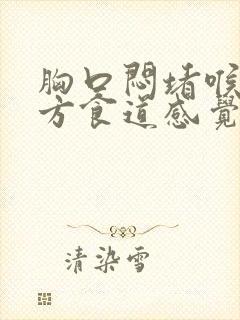 胸口悶堵喉
方食道感覺
清染雪